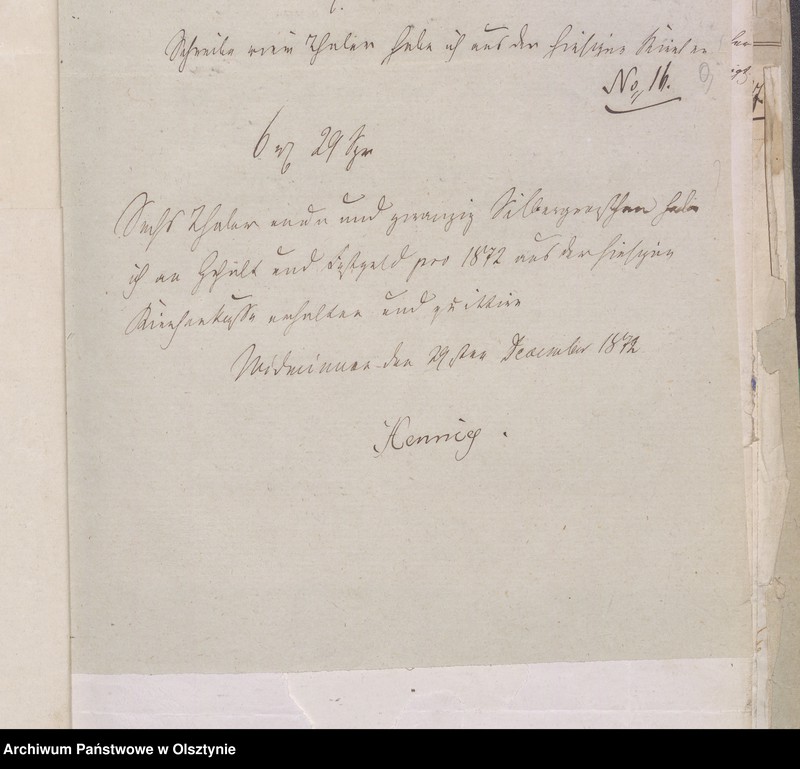 Schreibe vier Thaler habe ich aus der hiesigen Kirchen
No 16.
6 rℓ 29 Sgr
Sechs Thaler neun und zwanzig Silbergroschen habe
ich an Gehalt und Festgeld pro 1872 aus der hiesigen
Kirchenkasse erhalten und quittire
den 29sten December 1872
Hennig.
Archiwum Państwowe w Olsztynie